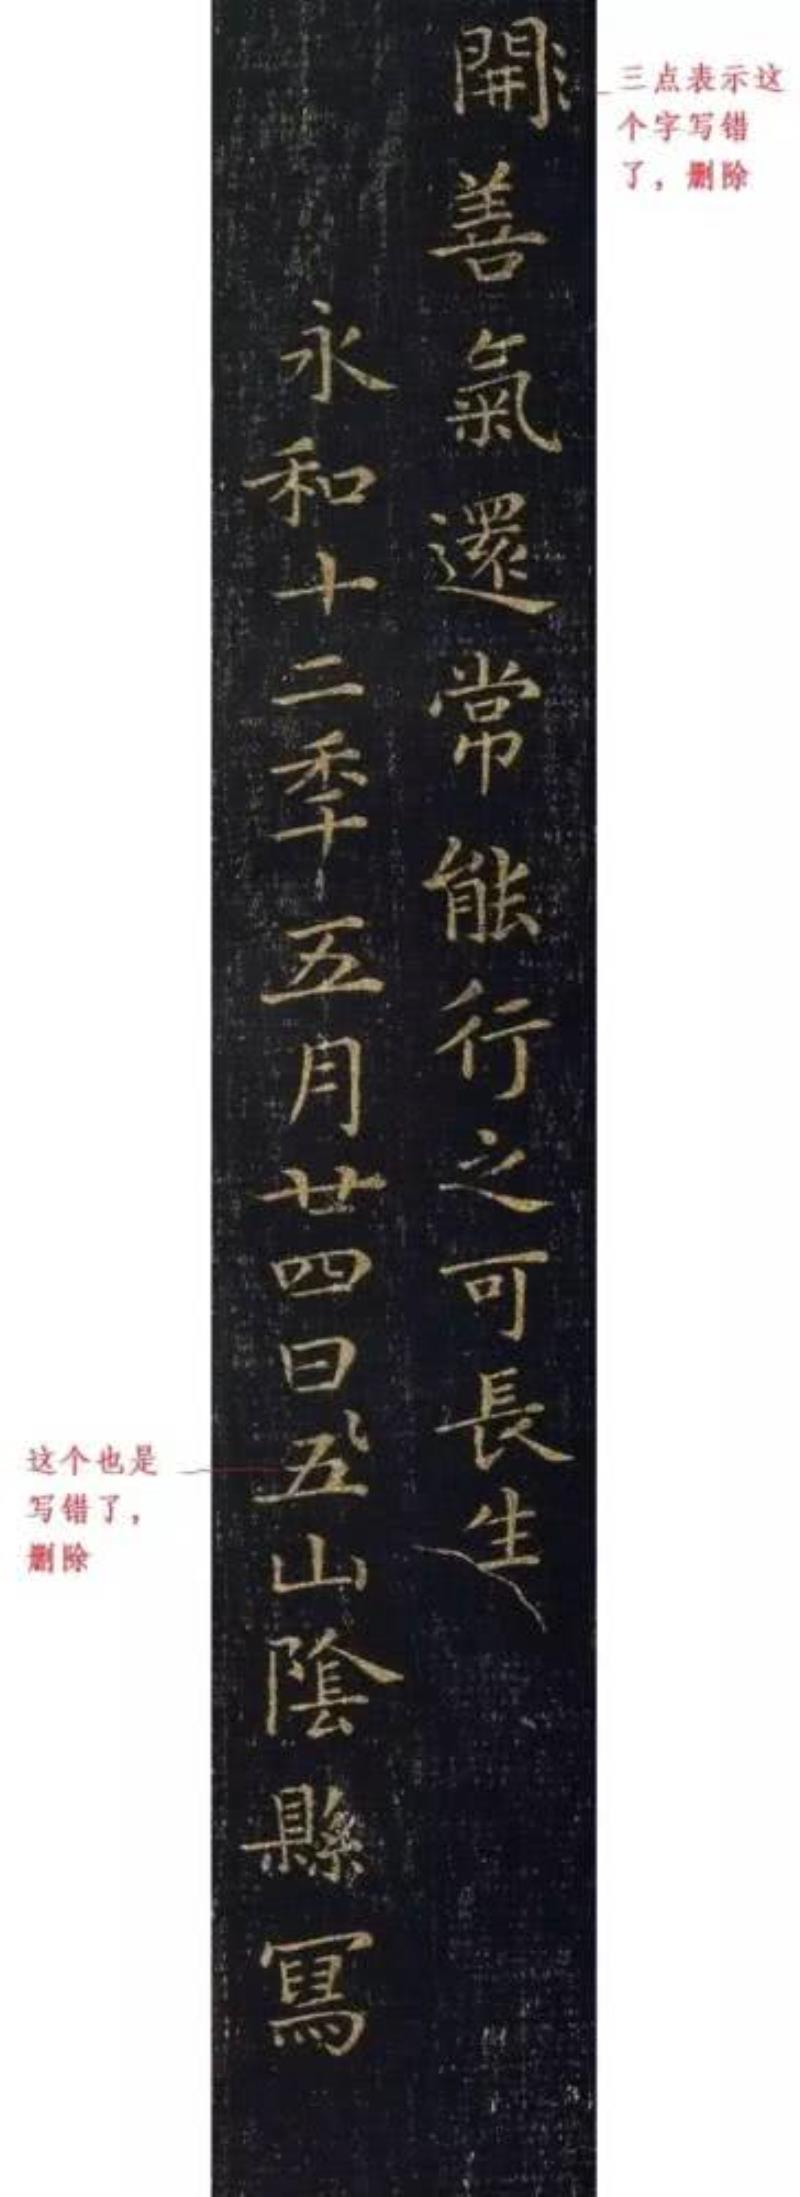 開善氣還常能行之可長生
永和十二秊五月廿四日五山陰縣寫
三点表示这
个字写错
了，删除
这个也是
写错了，
删除